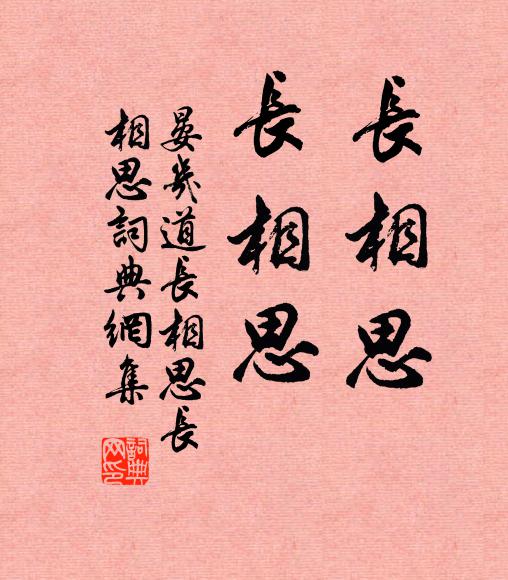 長相思
長相思
晏幾道長相思長
相思詞典網集
詞典網印